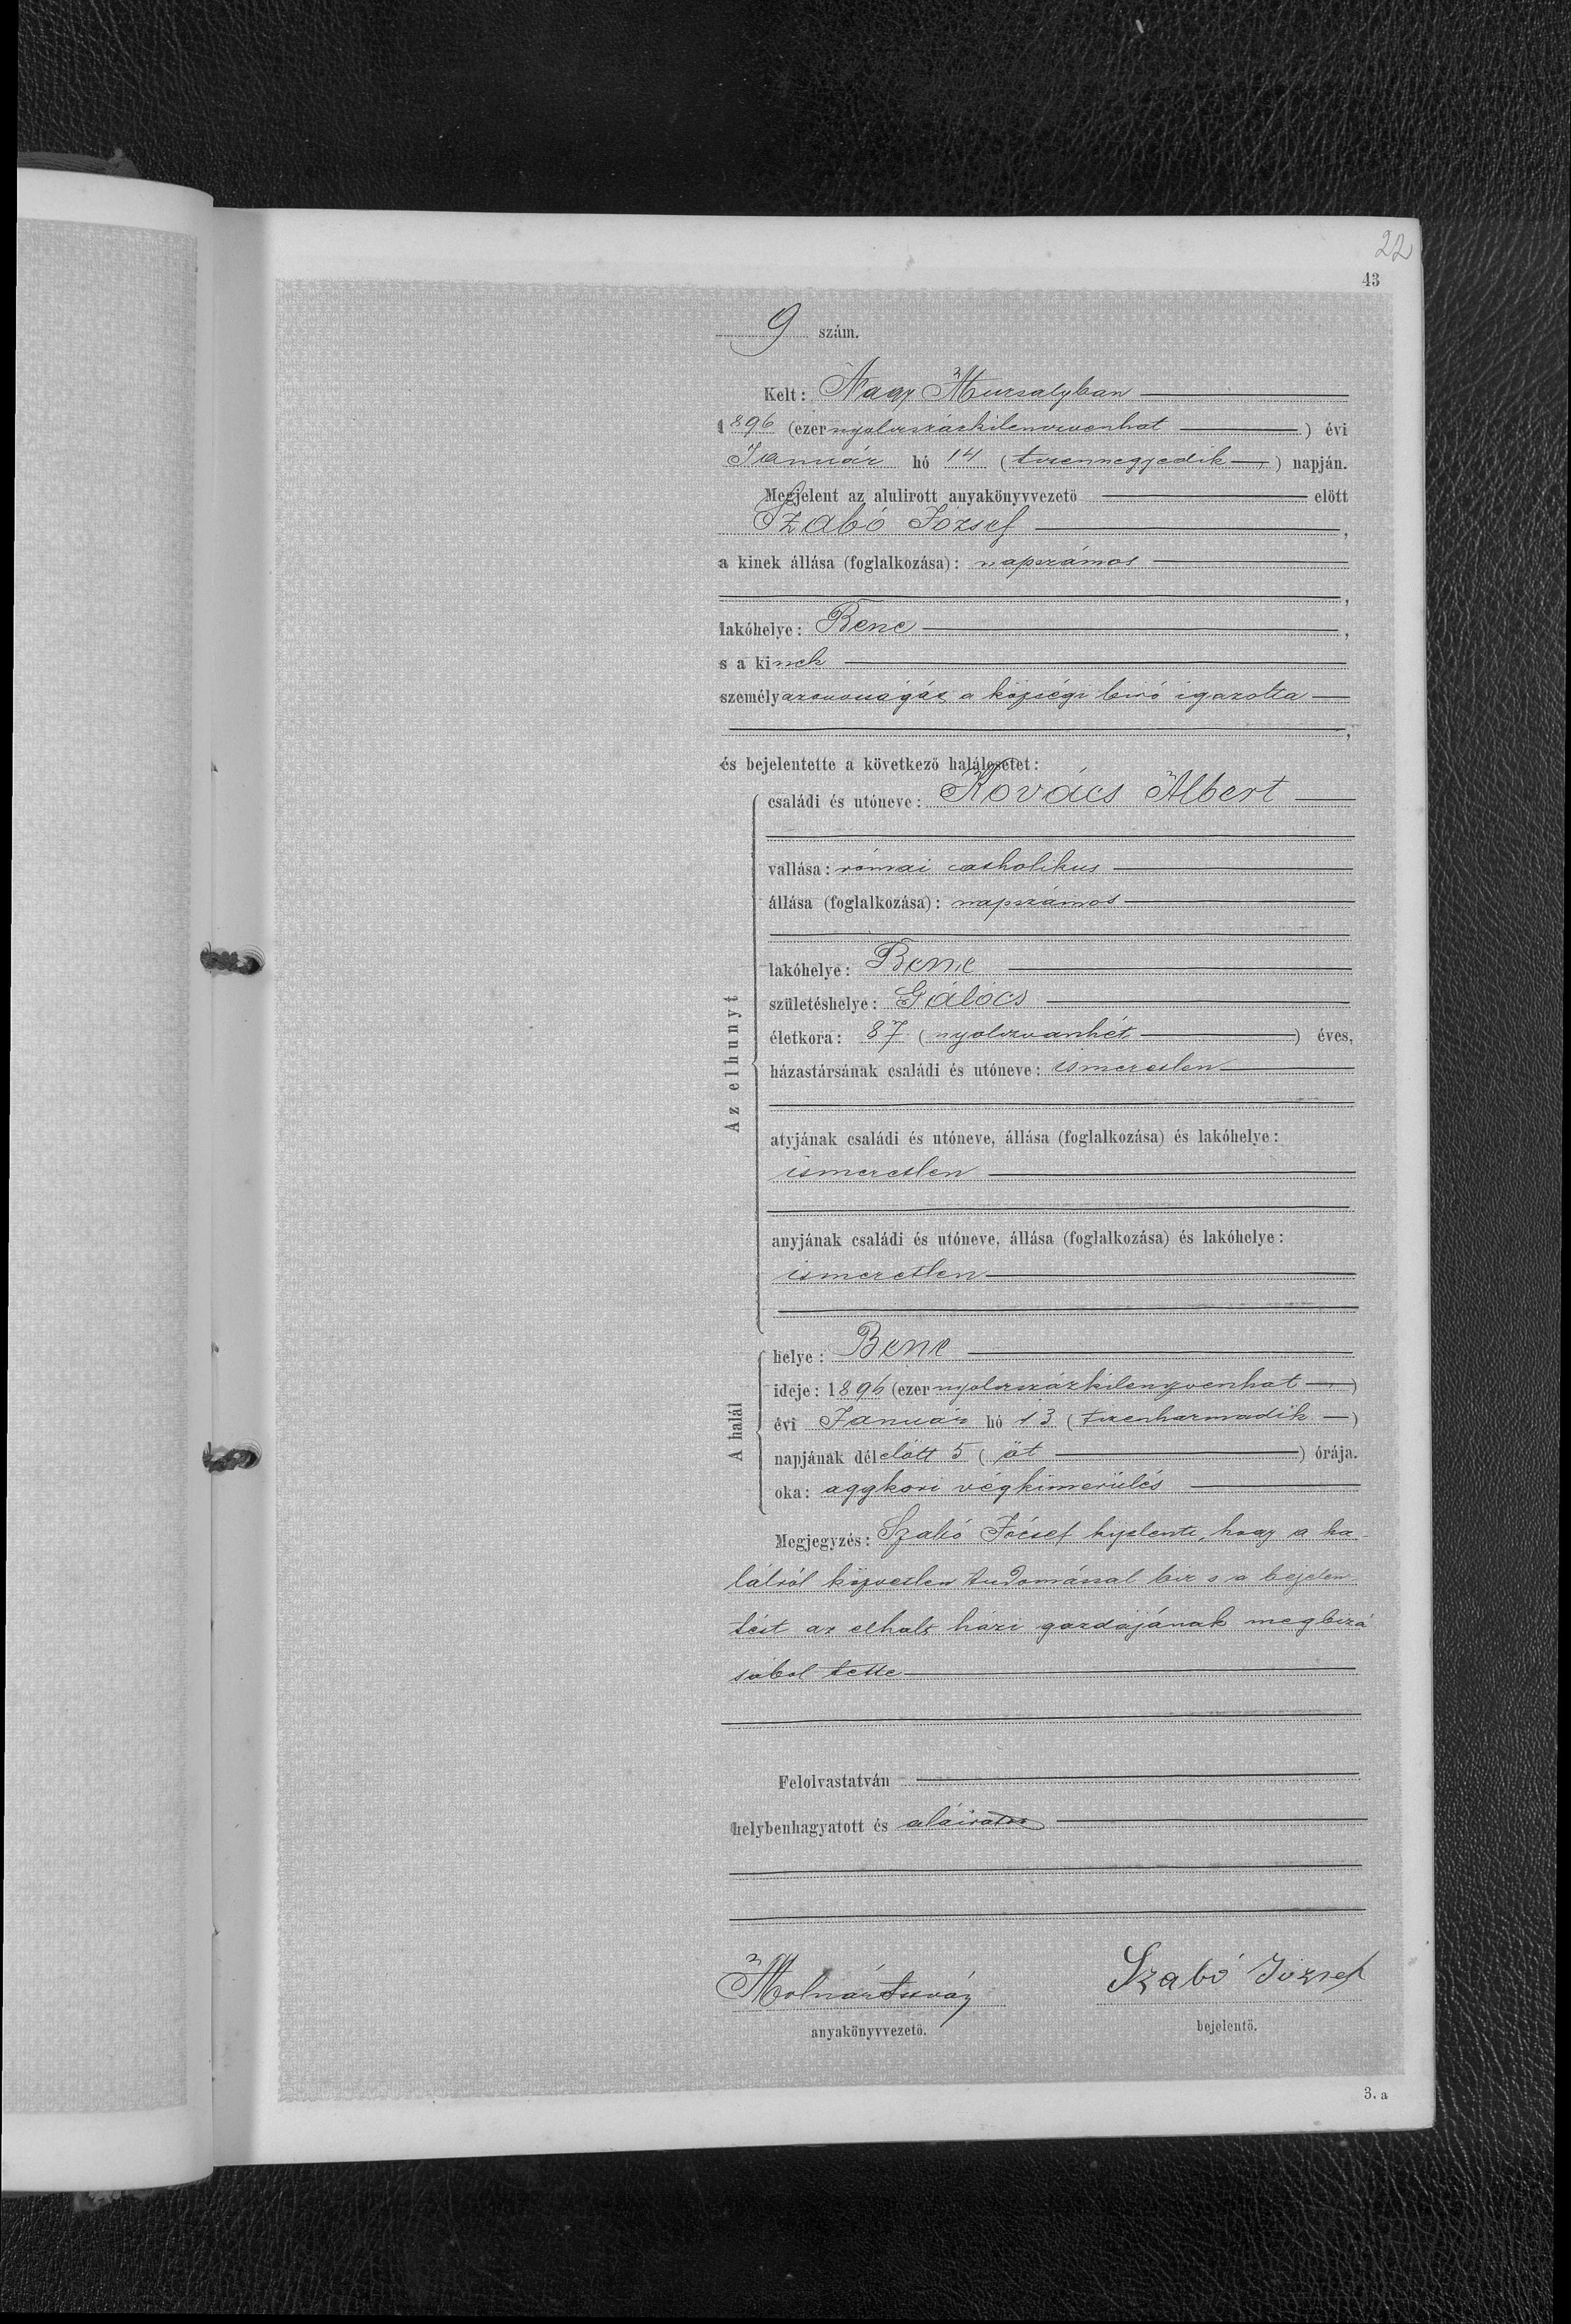 22
43
9 szám.
Kelt: Nagy Muzsalyban
1896 (ezernyolczszázkilenczvenhat) évi
Január hó 14 (tizennegyedik) napján.
Megjelent az alulirott anyakönyvvezető előtt
Szabó József,
a kinek állása (foglalkozása): napszámos
,
lakóhelye: Bene,
s a kinek
személyazonosságát a községi biró igazolta
,
és bejelentette a következő halálesetet:
Az elhunyt
családi és utóneve: Kovács Albert
vallása: római catholikus
állása (foglalkozása): napszámos
lakóhelye: Bene
születéshelye: Gálócs
életkora: 87 (nyolczvanhét) éves,
házastársának családi és utóneve: ismeretlen
atyjának családi és utóneve, állása (foglalkozása) és lakóhelye:
ismeretlen
anyjának családi és utóneve, állása (foglalkozása) és lakóhelye:
ismeretlen
A halál
helye: Bene
ideje: 1896 (ezernyolczszázkilenczvenhat)
évi Január hó 13 (tizenharmadik)
napjának délelőtt 5 (öt) órája.
oka: aggkori végkimerülés
Megjegyzés: Szabó József kijelenti, hogy a ha-
lálról közvetlen tudomással bir s a bejelen-
tést az elhalt házi gazdájának megbizá
sából tette
Felolvastatván
helybenhagyatott és aláiratott
Molnár István Szabó József
anyakönyvvezető. bejelentő.
3. a